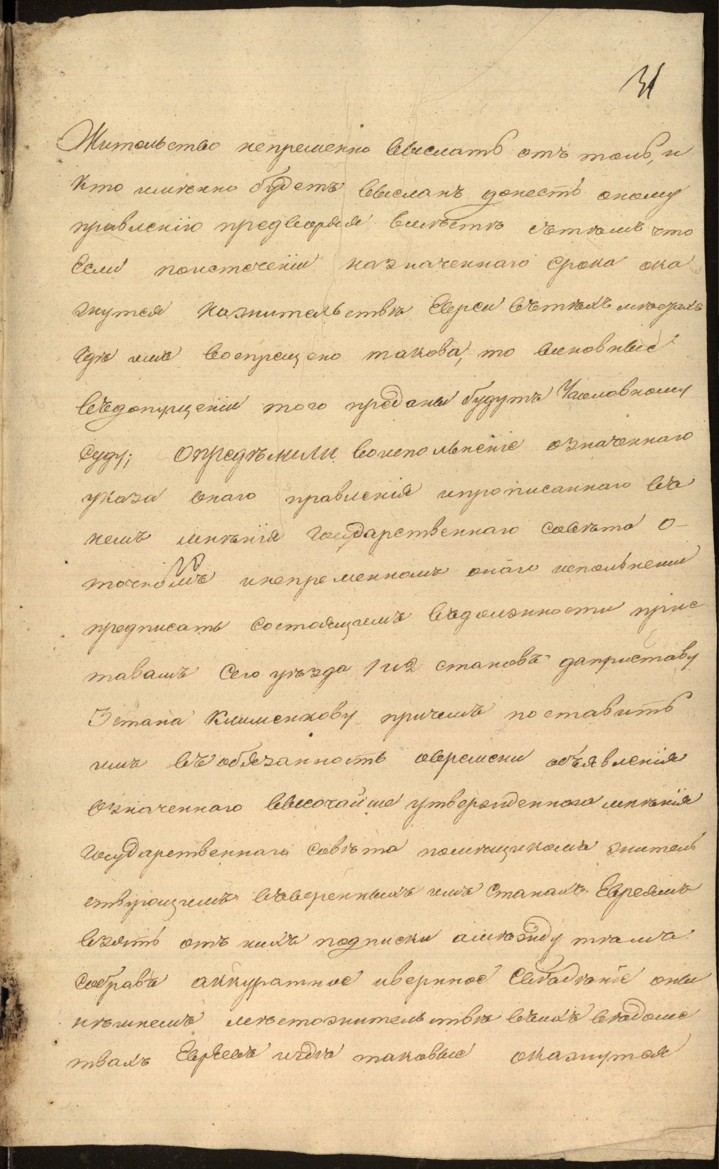 31
Жительство непременно выслать отъ толь, и
кто именно будетъ высланъ донесть оному
правленію предворяя вместѣ съ тѣмъ что
если поистеченіи назначеннаго срока ока
жутся нажительствѣ Евреи вътѣхъ мѣстахъ
гдѣ имъ воспрещено таковое, то виновные
въдопущеніи того преданы будутъ Уголовному
суду; Опредѣлили воисполненіе означеннаго
указа онаго правленія ипрописаннаго въ
немъ мнѣнія Государственнаго совѣта о
точномъ инепременномъ онаго исполненіи
предписать состоящимъ въдолжности прис
тавамъ сего уѣзда 1 и 2 становъ даприставу
3 стана Клименкову причемъ поставить
имъ въобязанность овремени объявленія
означеннаго высочайше утвержденнаго мнѣнія
Государственнаго совѣта помѣщикамъ ижитель
ствующимъ въвѣренныхъ имъ станахъ Евреямъ
взять отъ нихъ подписки амежду темъ
собравъ аккуратное иверное свѣдѣніе оны
нѣшнемъ местожительствѣ въихъ вѣдомс
твахъ Евреевъ игдѣ таковые окажутся